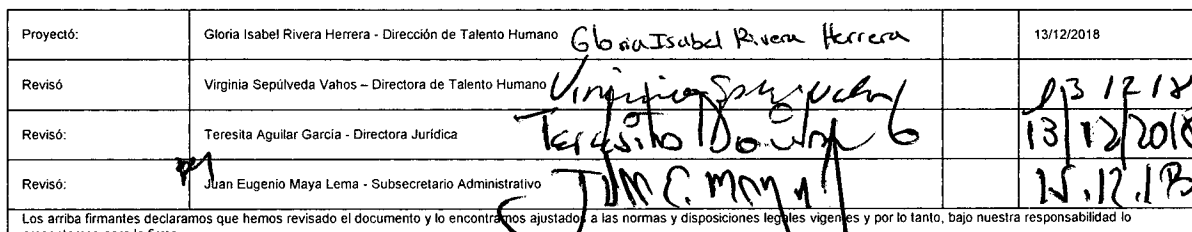 Proyectó: Gloria Isabel Rivera Herrera - Dirección de Talento Humano Gloria Isabel Rivera Herrera 13/12/2018
Revisó Virginia Sepúlveda Vahos – Directora de Talento Humano Virginia 13 12 18
Revisó: Teresita Aguilar García - Directora Jurídica Teresita 13/12/2018
Revisó: Juan Eugenio Maya Lema - Subsecretario Administrativo
Los arriba firmantes declaramos que hemos revisado el documento y lo encontramos ajustados a las normas y disposiciones legales vigentes y por lo tanto, bajo nuestra responsabilidad lo